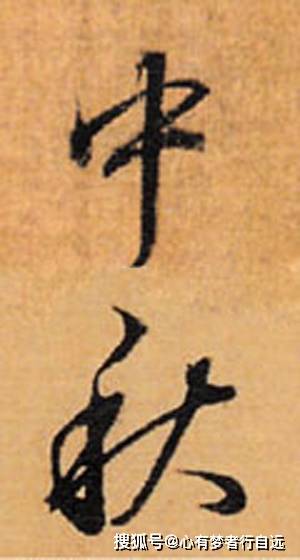 中秋
搜狐号@心有梦者行自远